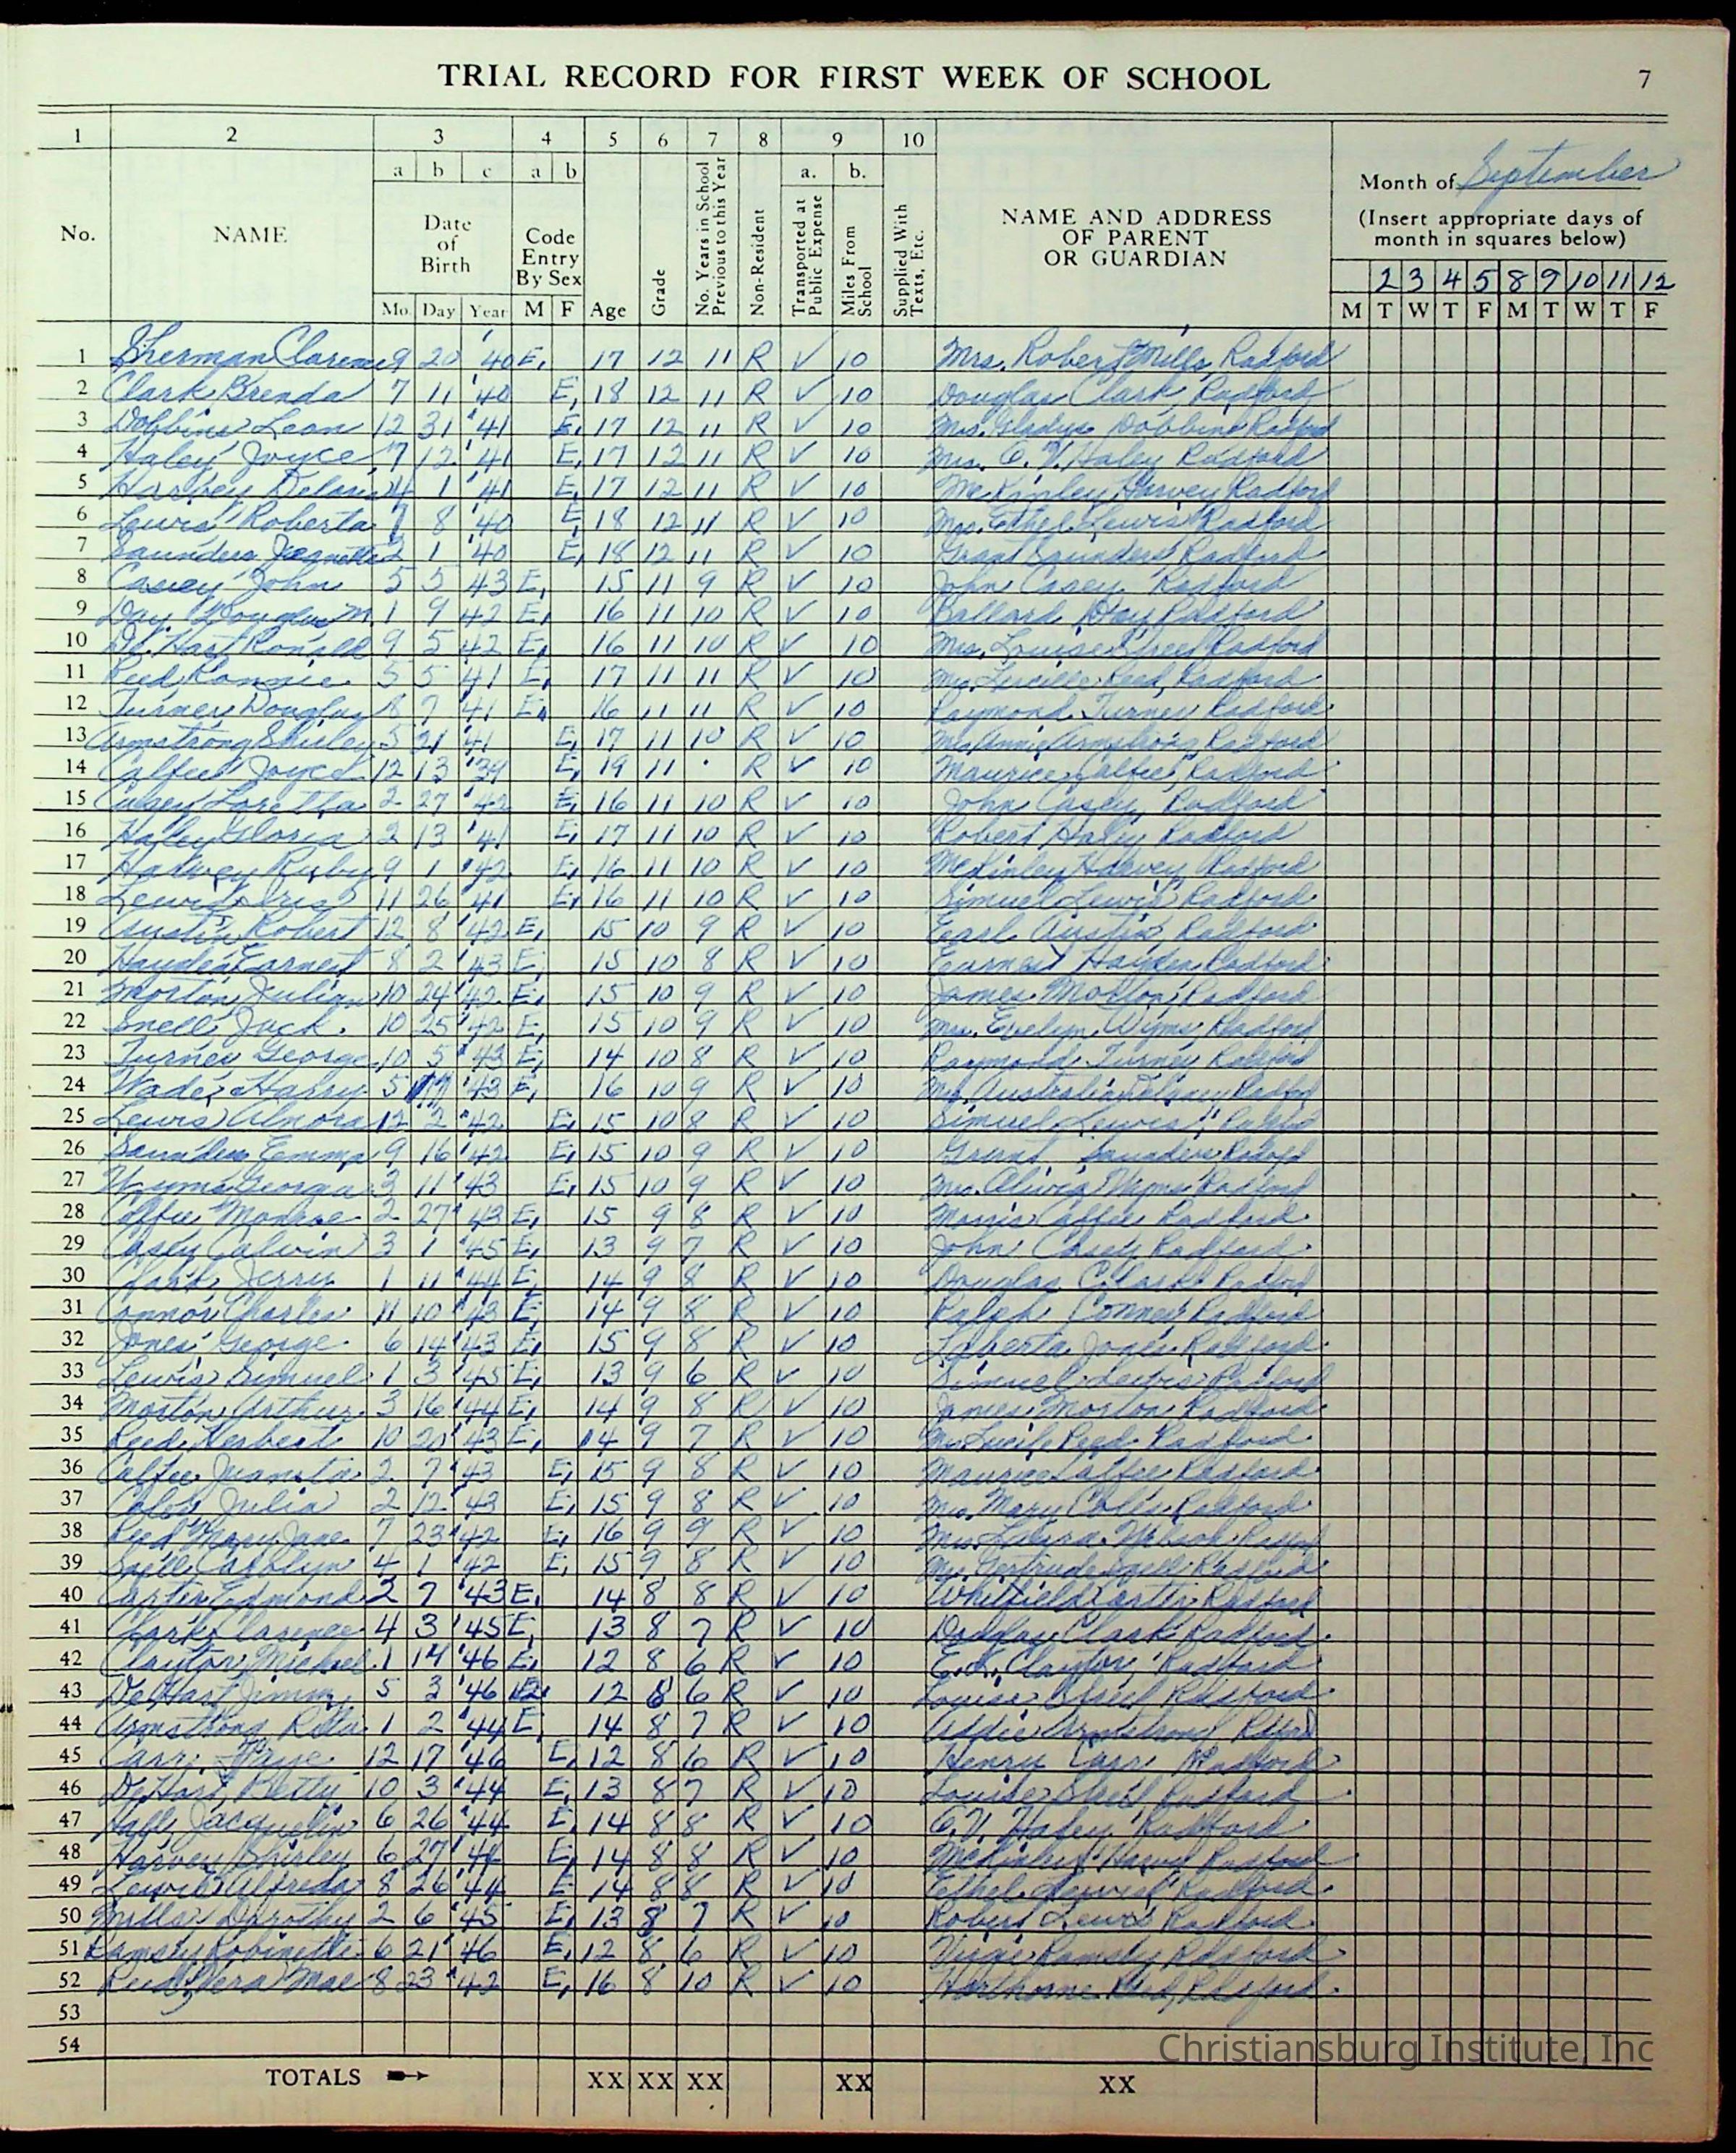 TRIAL RECORD FOR FIRST WEEK OF SCHOOL 7
1 2 3 4 5 6 7 8 9 10
a b c a b a. b.
Month of September
No. NAME Date of Birth Code Entry By Sex Age Grade No. Years in School Previous to this Year Non-Resident Transported at Public Expense Miles From School Supplied With Texts, Etc. NAME AND ADDRESS OF PARENT OR GUARDIAN
(Insert appropriate days of month in squares below)
2 3 4 5 8 9 10 11 12
Mo. Day Year M F M T W T F M T W T F
1 Sherman Clarence 9 20 '40 E, 17 12 11 R V 10 Mrs. Robert Mills Radford
2 Clark Brenda 7 11 '40 E, 18 12 11 R V 10 Douglas Clark Radford
3 Dobbins Leon 12 31 '41 E, 17 12 11 R V 10 Mrs. Gladys Dobbins Radford
4 Haley Joyce 7 12 '41 E, 17 12 11 R V 10 Mrs. Haley Radford
5 Harvey 4 1 '41 E, 17 12 11 R V 10 McKinley Harvey Radford
6 Lewis Roberta 7 8 '40 E, 18 12 11 R V 10 Mrs. Ethel Lewis Radford
7 Saunders Jeanette 2 1 '40 E, 18 12 11 R V 10 Grant Saunders Radford
8 Casey John 5 5 43 E, 15 11 9 R V 10 John Casey Radford
9 Day Douglas M. 1 9 42 E, 16 11 10 R V 10 Ballard Day Radford
10 De Hart Ronald 9 5 42 E, 16 11 10 R V 10 Mrs. Louise Radford
11 Reed Ronnie 5 5 41 E, 17 11 11 R V 10 Mrs. Lucille Reed, Radford
12 Turner Douglas 8 7 '41 E, 16 11 11 R V 10 Raymond Turner Radford
13 Armstrong Shirley 5 21 '41 E, 17 11 10 R V 10 Mrs. Annie Armstrong Radford
14 Calfee Joyce 12 13 '39 E, 19 11 R V 10 Maurice Calfee, Radford
15 Casey Loretta 2 27 '42 E, 16 11 10 R V 10 John Casey, Radford
16 Haley Gloria 2 13 '41 E, 17 11 10 R V 10 Robert Haley Radford
17 Harvey Ruby 9 1 '42 E, 16 11 10 R V 10 McKinley Harvey Radford
18 Lewis Iris 11 26 '41 E, 16 11 10 R V 10 Simuel Lewis Radford
19 Austin Robert 12 8 '42 E, 15 10 9 R V 10 Earl Austin Radford
20 Hayden Earnest 8 2 '43 E, 15 10 8 R V 10 Earnest Hayden Radford
21 Morton Julian 10 24 '42 E, 15 10 9 R V 10 James Morton Radford
22 Snell Jack 10 25 '42 E, 15 10 9 R V 10 Mrs. Evelyn Wyms Radford
23 Turner George 10 5 '43 E, 14 10 8 R V 10 Raymond Turner Radford
24 Wade Harry 5 '43 E, 16 10 9 R V 10 Mrs. Australia Radford
25 Lewis Almora 12 2 '42 E, 15 10 8 R V 10 Simuel Lewis Radford
26 Saunders Emma 9 16 '42 E, 15 10 9 R V 10 Grant Saunders Radford
27 Wyms Georgia 3 11 '43 E, 15 10 9 R V 10 Mrs. Wyms Radford
28 Calfee Monroe 2 27 '43 E, 15 9 8 R V 10 Morris Calfee Radford
29 Casey Calvin 3 1 '45 E, 13 9 7 R V 10 John Casey Radford
30 Clark, Jerry 1 11 '44 E, 14 9 8 R V 10 Douglas Clark Radford
31 Connor Charles 11 10 '43 E, 14 9 8 R V 10 Ralph Conner Radford
32 Jones George 6 14 '43 E, 15 9 8 R V 10 Jones Radford
33 Lewis Simuel 1 3 '45 E, 13 9 6 R V 10 Simuel Lewis Radford
34 Morton Arthur 3 16 '44 E, 14 9 8 R V 10 James Morton Radford
35 Reed Herbert 10 20 '43 E, 14 9 7 R V 10 Mrs Lucile Reed Radford
36 Calfee Juanita 2 7 '43 E, 15 9 8 R V 10 Maurice Calfee Radford
37 Coles Julia 2 12 '43 E, 15 9 8 R V 10 Mrs. Mary Coles Radford
38 Reed Mary Jane 7 23 '42 E, 16 9 9 R V 10 Mrs. Radford
39 Snell Carolyn 4 1 '42 E, 15 9 8 R V 10 Mrs. Gertrude Snell Radford
40 Carter Edmond 2 7 '43 E, 14 8 8 R V 10 Whitfield Carter Radford
41 Clark Clarence 4 3 '45 E, 13 8 7 R V 10 Douglas Clark Radford
42 Clayton Michael 1 14 '46 E, 12 8 6 R V 10 E. K. Clayton Radford
43 De Hart Jimmy 5 3 '46 E, 12 8 6 R V 10 Louise Radford
44 Armstrong 1 2 '44 E, 14 8 7 R V 10 Addie Armstrong Radford
45 Carr Faye 12 17 '46 E, 12 8 6 R V 10 Henry Carr Radford
46 De Hart Betty 10 3 '44 E, 13 8 7 R V 10 Louise Radford
47 Jacquelin 6 26 '44 E, 14 8 8 R V 10 Haley Radford
48 Harvey Shirley 6 27 '44 E, 14 8 8 R V 10 McKinley Harvey Radford
49 Lewis Alfreda 8 26 '44 E 14 8 8 R V 10 Ethel Lewis Radford
50 Mills Dorothy 2 6 '45 E, 13 8 7 R V 10 Robert Lewis Radford
51 Ramsey Robinette 6 21 '46 E, 12 8 6 R V 10 Virgie Ramsey Radford
52 Reed, Vera Mae 8 23 '42 E, 16 8 10 R V 10 Harthorne Reed, Radford
53
54
Christiansburg Institute, Inc
TOTALS XX XX XX XX XX